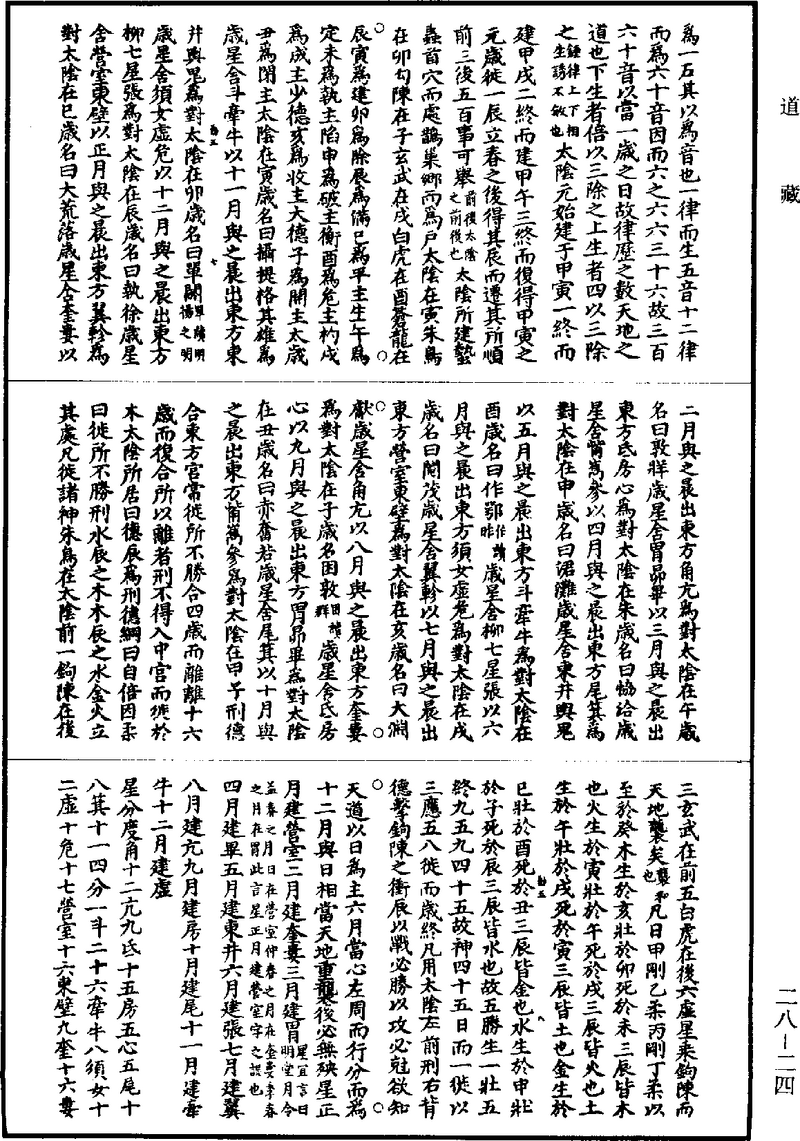 道藏
為一石其以為音也一律而生五音十二律
而為六十音因而六之六六三十六故三百
六十音以當一歲之日故律歷之數天地之
道也下生者倍以三除之上生者四以三除
之鍾律上下相生誘不敏也太陰元始建于甲寅一終而
建甲戌二終而建甲午三終而復得甲寅之
元歲徙一辰立春之後得其辰而遷其所順
前三後五百事可舉前後太陰之前後也太陰所建蟄
蟲首穴而處鵲巢鄉而為戶太陰在寅朱鳥
在卯勾陳在子玄武在戌白虎在酉蒼龍在
辰寅為建卯為除辰為滿巳為平主生午為
定未為執主陷申為破主衡酉為危主杓戌
為成主少德亥為收主大德子為開主太歲
丑為閉主太陰在寅歲名曰攝提格其雄為
歲星舍斗牽牛以十一月與之晨出東方東
井輿鬼為對太陰在卯歲名曰單閼單讀明揚之明
歲星舍須女虛危以十二月與之晨出東方
柳七星張為對太陰在辰歲名曰執徐歲星
舍營室東壁以正月與之晨出東方翼軫為
對太陰在巳歲名曰大荒落歲星舍奎婁以
二月與之晨出東方角亢為對太陰在午歲
名曰敦牂歲星舍胃昴畢以三月與之晨出
東方氐房心為對太陰在未歲名曰協洽歲
星舍觜嶲參以四月與之晨出東方尾箕為
對太陰在申歲名曰涒灘歲星舍東井輿鬼
以五月與之晨出東方斗牽牛為對太陰在
酉歲名曰作鄂作讀昨歲星舍柳七星張以六
月與之晨出東方須女虛危為對太陰在戌
歲名曰閹茂歲星舍翼軫以七月與之晨出
東方營室東壁為對太陰在亥歲名曰大淵
獻歲星舍角亢以八月與之晨出東方奎婁
為對太陰在子歲名困敦困讀群歲星舍氐房
心以九月與之晨出東方胃昴畢為對太陰
在丑歲名曰赤奮若歲星舍尾箕以十月與
之晨出東方觜嶲參為對太陰在甲子刑德
合東方宮常徙所不勝合四歲而離離十六
歲而復合所以離者刑不得入中宮而徙於
木太陰所居曰德辰為刑德綱曰自倍因柔
曰徙所不勝刑水辰之木木辰之水金火立
其處凡徙諸神朱鳥在太陰前一鉤陳在後
三玄武在前五白虎在後六虛星乘鉤陳而
天地襲矣襲和也凡日甲剛乙柔丙剛丁柔以
至於癸木生於亥壯於卯死於未三辰皆木
也火生於寅壯於午死於戌三辰皆火也土
生於午壯於戌死於寅三辰皆土也金生於
巳壯於酉死於丑三辰皆金也水生於申壯
於子死於辰三辰皆水也故五勝生一壯五
終九五九四十五故神四十五日而一徙以
三應五八徙而歲終凡用太陰左前刑右背
德擊鉤陳之衝辰以戰必勝以攻必剋欲知
天道以日為主六月當心左周而行分而為
十二月與日相當天地重襲後必無殃星正
月建營室二月建奎婁三月建胃星宜言日明堂月令
孟春之月日在營室仲春之月在奎婁季春之月在胃此言星正月建營室字之誤也
四月建畢五月建東井六月建張七月建翼
八月建亢九月建房十月建尾十一月建牽
牛十二月建虛
星分度角十二亢九氐十五房五心五尾十
八箕十一四分一斗二十六牽牛八須女十
二虛十危十七營室十六東壁九奎十六婁
二八—二四